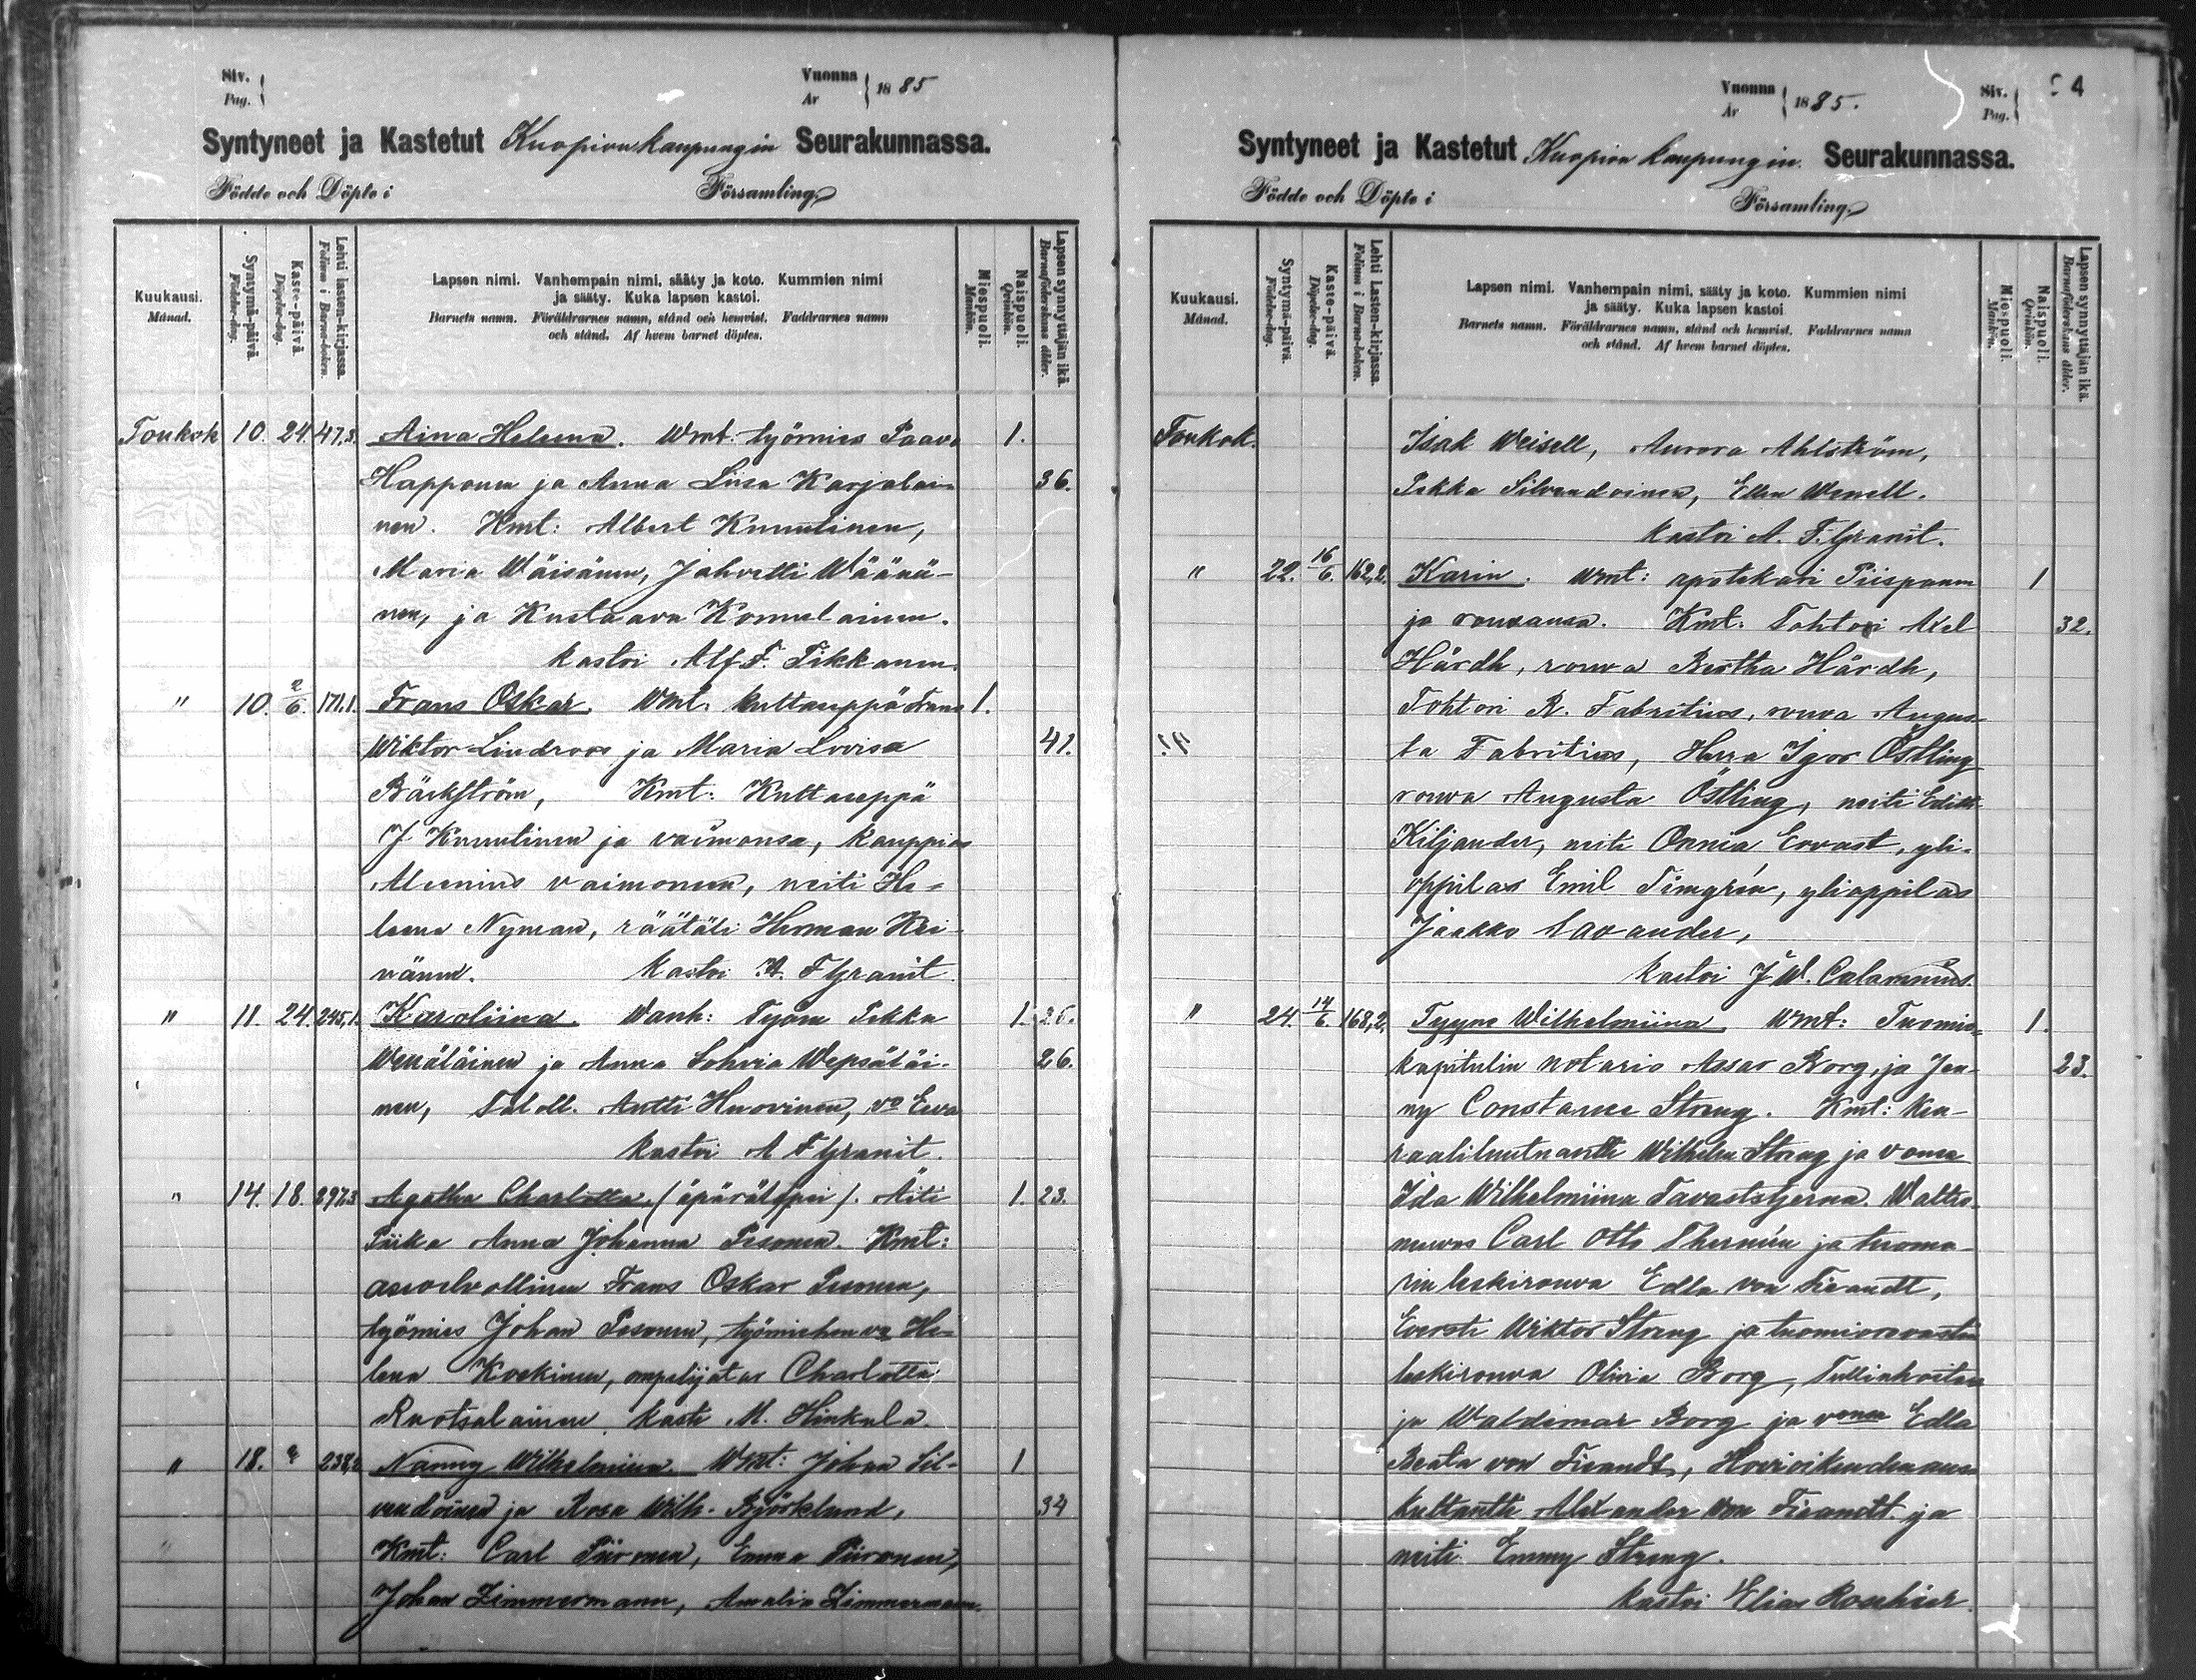 Siv.
Pag.
Vuonna
År
1885
Syntyneet ja Kastetut Kuopion kaupungin Seurakunnassa.
Födde och Döpte i Församling
Kuukausi.
Månad.
Syntymä-päivä.
Födelse-dag.
Kaste-päivä.
Döpelse-dag.
Lehti lasten-kirjassa.
Folium i Barna-boken.
Lapsen nimi. Vanhempain nimi, sääty ja koto. Kummien nimi
ja sääty. Kuka lapsen kastoi.
Barnets namn. Föräldrarnes namn, stånd och hemvist. Faddrarnes namn
och stånd. Af hvem barnet döptes.
Miespuoli.
Mankön.
Naispuoli.
Qvinkön.
Lapsen synnyttäjän ikä.
Barnaföderskans ålder.
Toukok 10. 24. 47,3. Aina Helena. Wmt: työmies Paavo 1.
Happonen ja Anna Liisa Karjalai- 36.
nen. Kmt: Albert Knuutinen,
Maria Wäisänen, Johvetti Wäänä-
nen, ja Kustaava Konnulainen.
kastoi Alf F. Tikkanen.
" 10. 2/6. 171.1. Frans Oskar. Wmt. kultaseppä Frans 1.
Wiktor Lindroos ja Maria Lovisa 41.
Bäckström, Kmt: Kultaseppä
J Knuutinen ja vaimonsa, kauppias
Aleenius vaimoneen, neiti He-
leena Nyman, räätäli Herman Hei-
vänen. kastoi A. F Granit
" 11. 24. 245,1. Karoliina. Wanh: Tyom Pekka 1. 26.
Wenäläinen ja Anna Sohvia Wepsäläi- 26.
nen, Taloll. Antti Huovinen, vo Eeva
kastoi A F Granit.
" 14. 18. 297.3 Agatha Charlotta. (äpärälapsi). Äiti 1. 23.
Piika Anna Johanna Pesonen. Kmt:
asevelvollinen Frans Oskar Pesonen,
työmies Johan Pesonen, työmiehen va He-
lena Koskinen, ompelijatar Charlotta
Ruotsalainen. kasti M. Hinkula.
" 18. 238,2 Nanny Wilhelmiina. Wmt: Johan Sil- 1
vendoinen ja Rosa Wilh. Björklund, 34
Kmt: Carl Piironen, Emma Piironen,
Johan Zimmermann, Amalia Zimmermann.
Vuonna
År
1885.
Siv.
Pag.
4
Syntyneet ja Kastetut Kuopion kaupungin. Seurakunnassa.
Födde och Döpte i Församling
Kuukausi.
Månad.
Syntymä-päivä.
Födelse-dag.
Kaste-päivä.
Döpelse-dag.
Lehti Lasten-kirjassa.
Folium i Barna-boken.
Lapsen nimi. Vanhempain nimi, sääty ja koto. Kummien nimi
ja sääty. Kuka lapsen kastoi
Barnets namn. Föräldrarnes namn, stånd och hemvist. Faddrarnes namn
och stånd. Af hvem barnet döptes.
Miespuoli.
Mankön.
Naispuoli.
Qvinkön.
Lapsen synnyttäjän ikä.
Barnaföderskans ålder.
Toukok. Isak Weisell, Aurora Ahlström,
Pekka Silvendoinen, Ellen Wenell.
kastoi A. F. Granit.
" 22. 16/6. 162,2. Karin. Wmt: apotekari Piispanen 1
ja rouvansa. Kmt. Tohtori Axel 32.
Hårdh, rouva Bertha Hårdh,
Tohtori R. Fabritius, rouva Augus-
ta Fabritius, Herra Igor Östling
rouva Augusta Östling, neiti Edith
Kiljander, neiti Onnia Ervast, yli-
oppilas Emil Timgrén, ylioppilas
Jaakko Savander,
kastoi J. W. Calamnius.
" 24. 14/6. 168,2. Tyyne Wilhelmiina. Wmt: Tuomio- 1.
kapitulin notario Assar Borg, ja Jen- 23.
ny Constance Streng. Kmt: Ken-
raaliluutnantti Wilhelm Streng ja rouva
Ida Wilhelmiina Tavaststjerna. Waltio-
neuvos Carl Otto Thermén ja tuoma-
rin leskirouva Edla von Fieandt,
Eversti Wiktor Streng ja tuomiorovastin
leskirouva Olivia Borg, Tullinhoitaja
ja Waldemar Borg ja rouva Edla
Beata von Fieandt, Hovioikeuden aus-
kultantti Alexander von Fieandt ja
neiti Emmy Streng.
kastoi Elias Rosehiär.